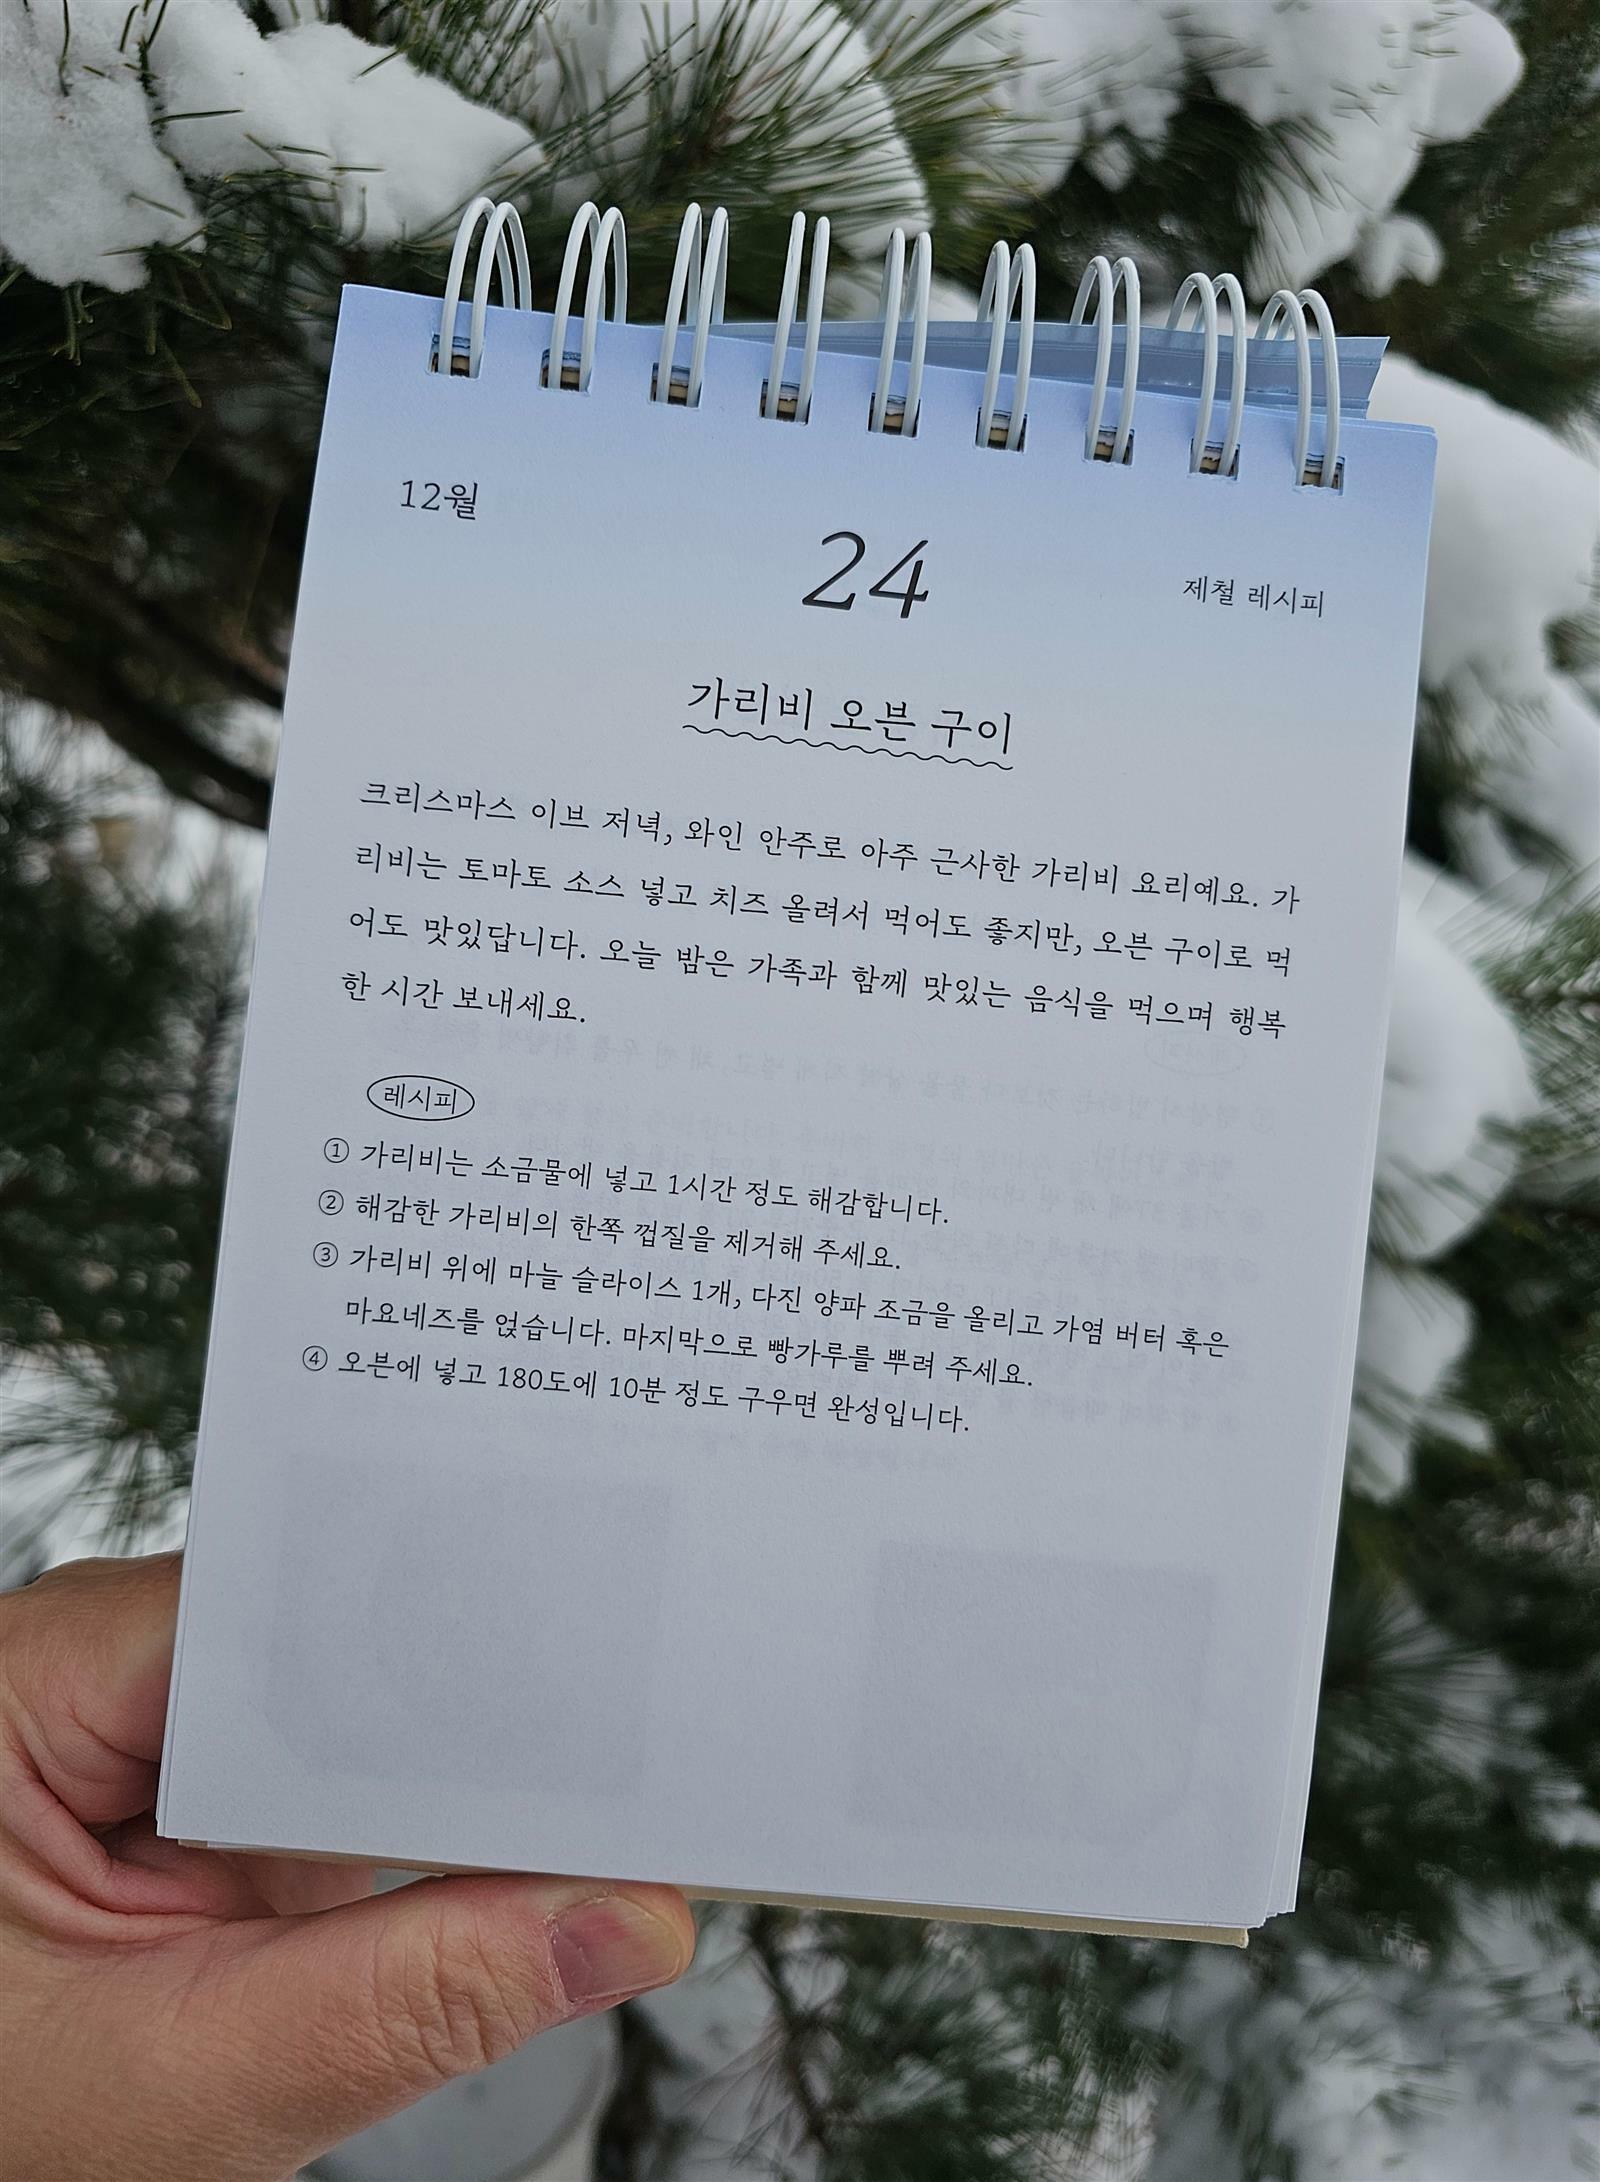 12월
24
제철 레시피
가리비 오븐 구이
크리스마스 이브 저녁, 와인 안주로 아주 근사한 가리비 요리예요. 가
리비는 토마토 소스 넣고 치즈 올려서 먹어도 좋지만, 오븐 구이로 먹
어도 맛있답니다. 오늘 밤은 가족과 함께 맛있는 음식을 먹으며 행복
한 시간 보내세요.
레시피
① 가리비는 소금물에 넣고 1시간 정도 해감합니다.
② 해감한 가리비의 한쪽 껍질을 제거해 주세요.
③ 가리비 위에 마늘 슬라이스 1개, 다진 양파 조금을 올리고 가염 버터 혹은
마요네즈를 얹습니다. 마지막으로 빵가루를 뿌려 주세요.
④ 오븐에 넣고 180도에 10분 정도 구우면 완성입니다.